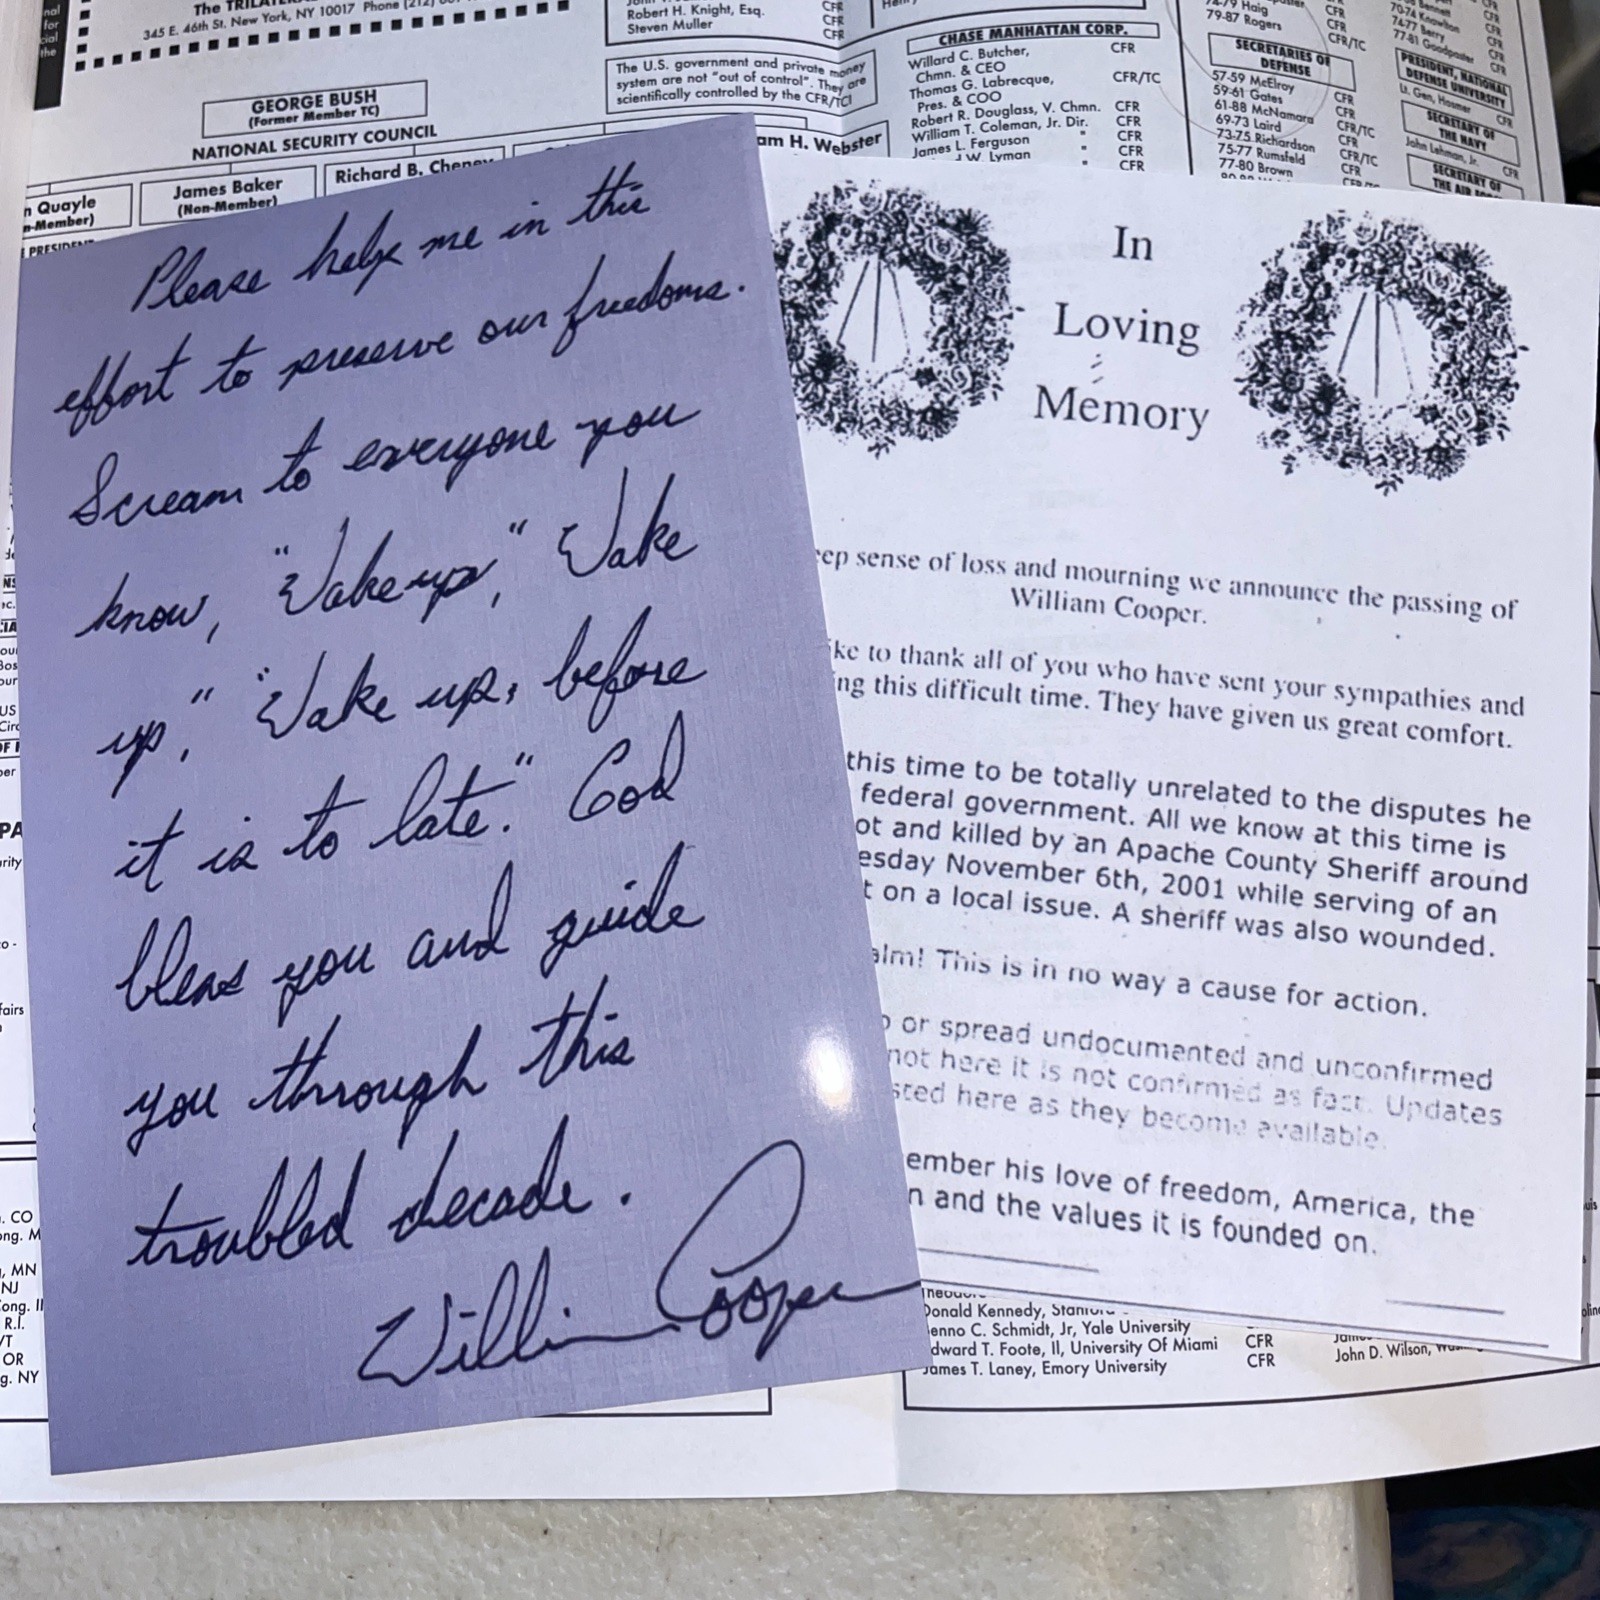 The
345 E. 46th St. New York, NY 10017 Phone
Robert H. Knight, Esq. CFR
Steven Muller CFR
The U.S. government and private money
system are not "out of control". They are
scientifically controlled by the CFR/TC!
GEORGE BUSH
(Former Member TC)
NATIONAL SECURITY COUNCIL
Quayle
James Baker
(Non-Member)
Richard B. Cheney
am H. Webster
CHASE MANHATTAN CORP.
Willard C. Butcher, CFR
Chmn. & CEO
Thomas G. Labrecque, CFR/TC
Pres. & COO
Robert R. Douglass, V. Chmn. CFR
William T. Coleman, Jr. Dir. CFR
James L. Ferguson " CFR
J.W. Lyman " CFR
74-79 Haig CFR
79-87 Rogers CFR/TC
SECRETARIES OF
DEFENSE
57-59 McElroy CFR
59-61 Gates CFR/TC
61-88 McNamara CFR
69-73 Laird
73-75 Richardson CFR/TC
75-77 Rumsfeld CFR
77-80 Brown
70-74 Knowlton CFR
74-77 Berry CFR
77-81 Goodpaster CFR
PRESIDENT, NATIONAL
DEFENSE UNIVERSITY
Lt. Gen, Hosmer CFR
SECRETARY OF
THE NAVY
John Lehman, Jr. CFR
SECRETARY OF
Please help me in this
effort to preserve our freedoms.
Scream to everyone you
know, "Wake up," "Wake
up," "Wake up, before
it is to late." God
bless you and guide
you through this
troubled decade.
William Cooper
In
Loving
Memory
ep sense of loss and mourning we announce the passing of
William Cooper.
ke to thank all of you who have sent your sympathies and
ng this difficult time. They have given us great comfort.
this time to be totally unrelated to the disputes he
federal government. All we know at this time is
ot and killed by an Apache County Sheriff around
esday November 6th, 2001 while serving of an
t on a local issue. A sheriff was also wounded.
alm! This is in no way a cause for action.
or spread undocumented and unconfirmed
not here it is not confirmed as fact. Updates
sted here as they become available.
ember his love of freedom, America, the
n and the values it is founded on.
Donald Kennedy, Stanford
enno C. Schmidt, Jr, Yale University
dward T. Foote, II, University Of Miami CFR
James T. Laney, Emory University CFR
John D. Wilson,